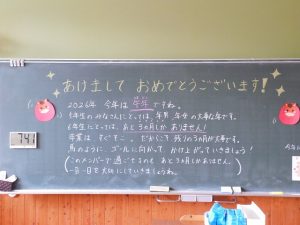 あけまして おめでとうございます!
2026年 今年は 午年 ですね。
5年生のみなさんにとっては、年男 年女 の大事な年です。
6年生にとっては、あと3ヵ月しか ありません!
卒業は すぐそこ。だからこそ 残りの3ヵ月が大事です。
馬のように、ゴールに向かって かけ上がっていきましょう!
このメンバーで過ごせるのも あと3ヵ月しかありません。
一日一日を大切にしていきましょうね。
741